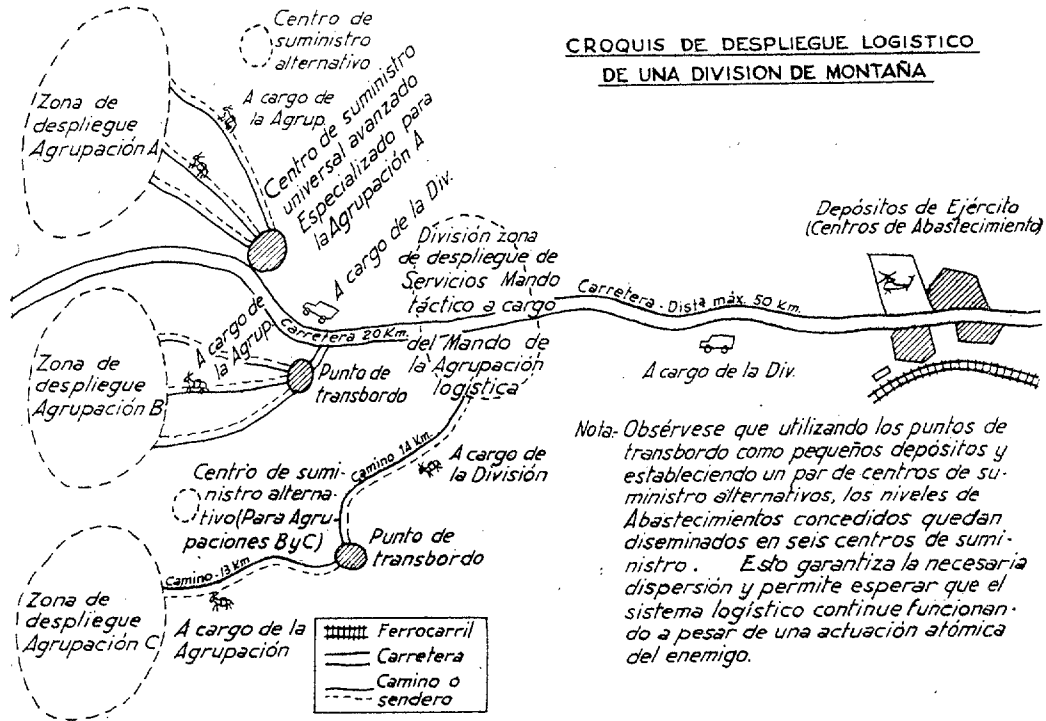 CROQUIS DE DESPLIEGUE LOGISTICO
DE UNA DIVISION DE MONTAÑA
Centro de
suministro
alternativo
Zona de
despliegue
Agrupación A
A cargo de
la Agrup.
Centro de suministro
universal avanzado
Especializado para
la Agrupación A
A cargo de la Div.
División zona
de despliegue de
Servicios Mando
táctico a cargo
del Mando de
la Agrupación
logística
Depósitos de Ejército
(Centros de Abastecimiento)
Carretera - Dista máx. 50 Km.
A cargo de la Div.
Carretera 20 Km.
A cargo de
la Agrup.
Zona de
despliegue
Agrupación B
Punto de
transbordo
Camino 14 Km.
A cargo de
la División
Centro de sumi-
nistro alterna-
tivo (Para Agru-
paciones B y C)
Punto de
transbordo
Camino - 13 Km
Zona de
despliegue
Agrupación C
A cargo de la
Agrupación
Ferrocarril
Carretera
Camino o
sendero
Nota.- Obsérvese que utilizando los puntos de
transbordo como pequeños depósitos y
estableciendo un par de centros de su-
ministro alternativos, los niveles de
Abastecimientos concedidos quedan
diseminados en seis centros de sumi-
nistro. Esto garantiza la necesaria
dispersión y permite esperar que el
sistema logístico continue funcionan-
do a pesar de una actuación atómica
del enemigo.